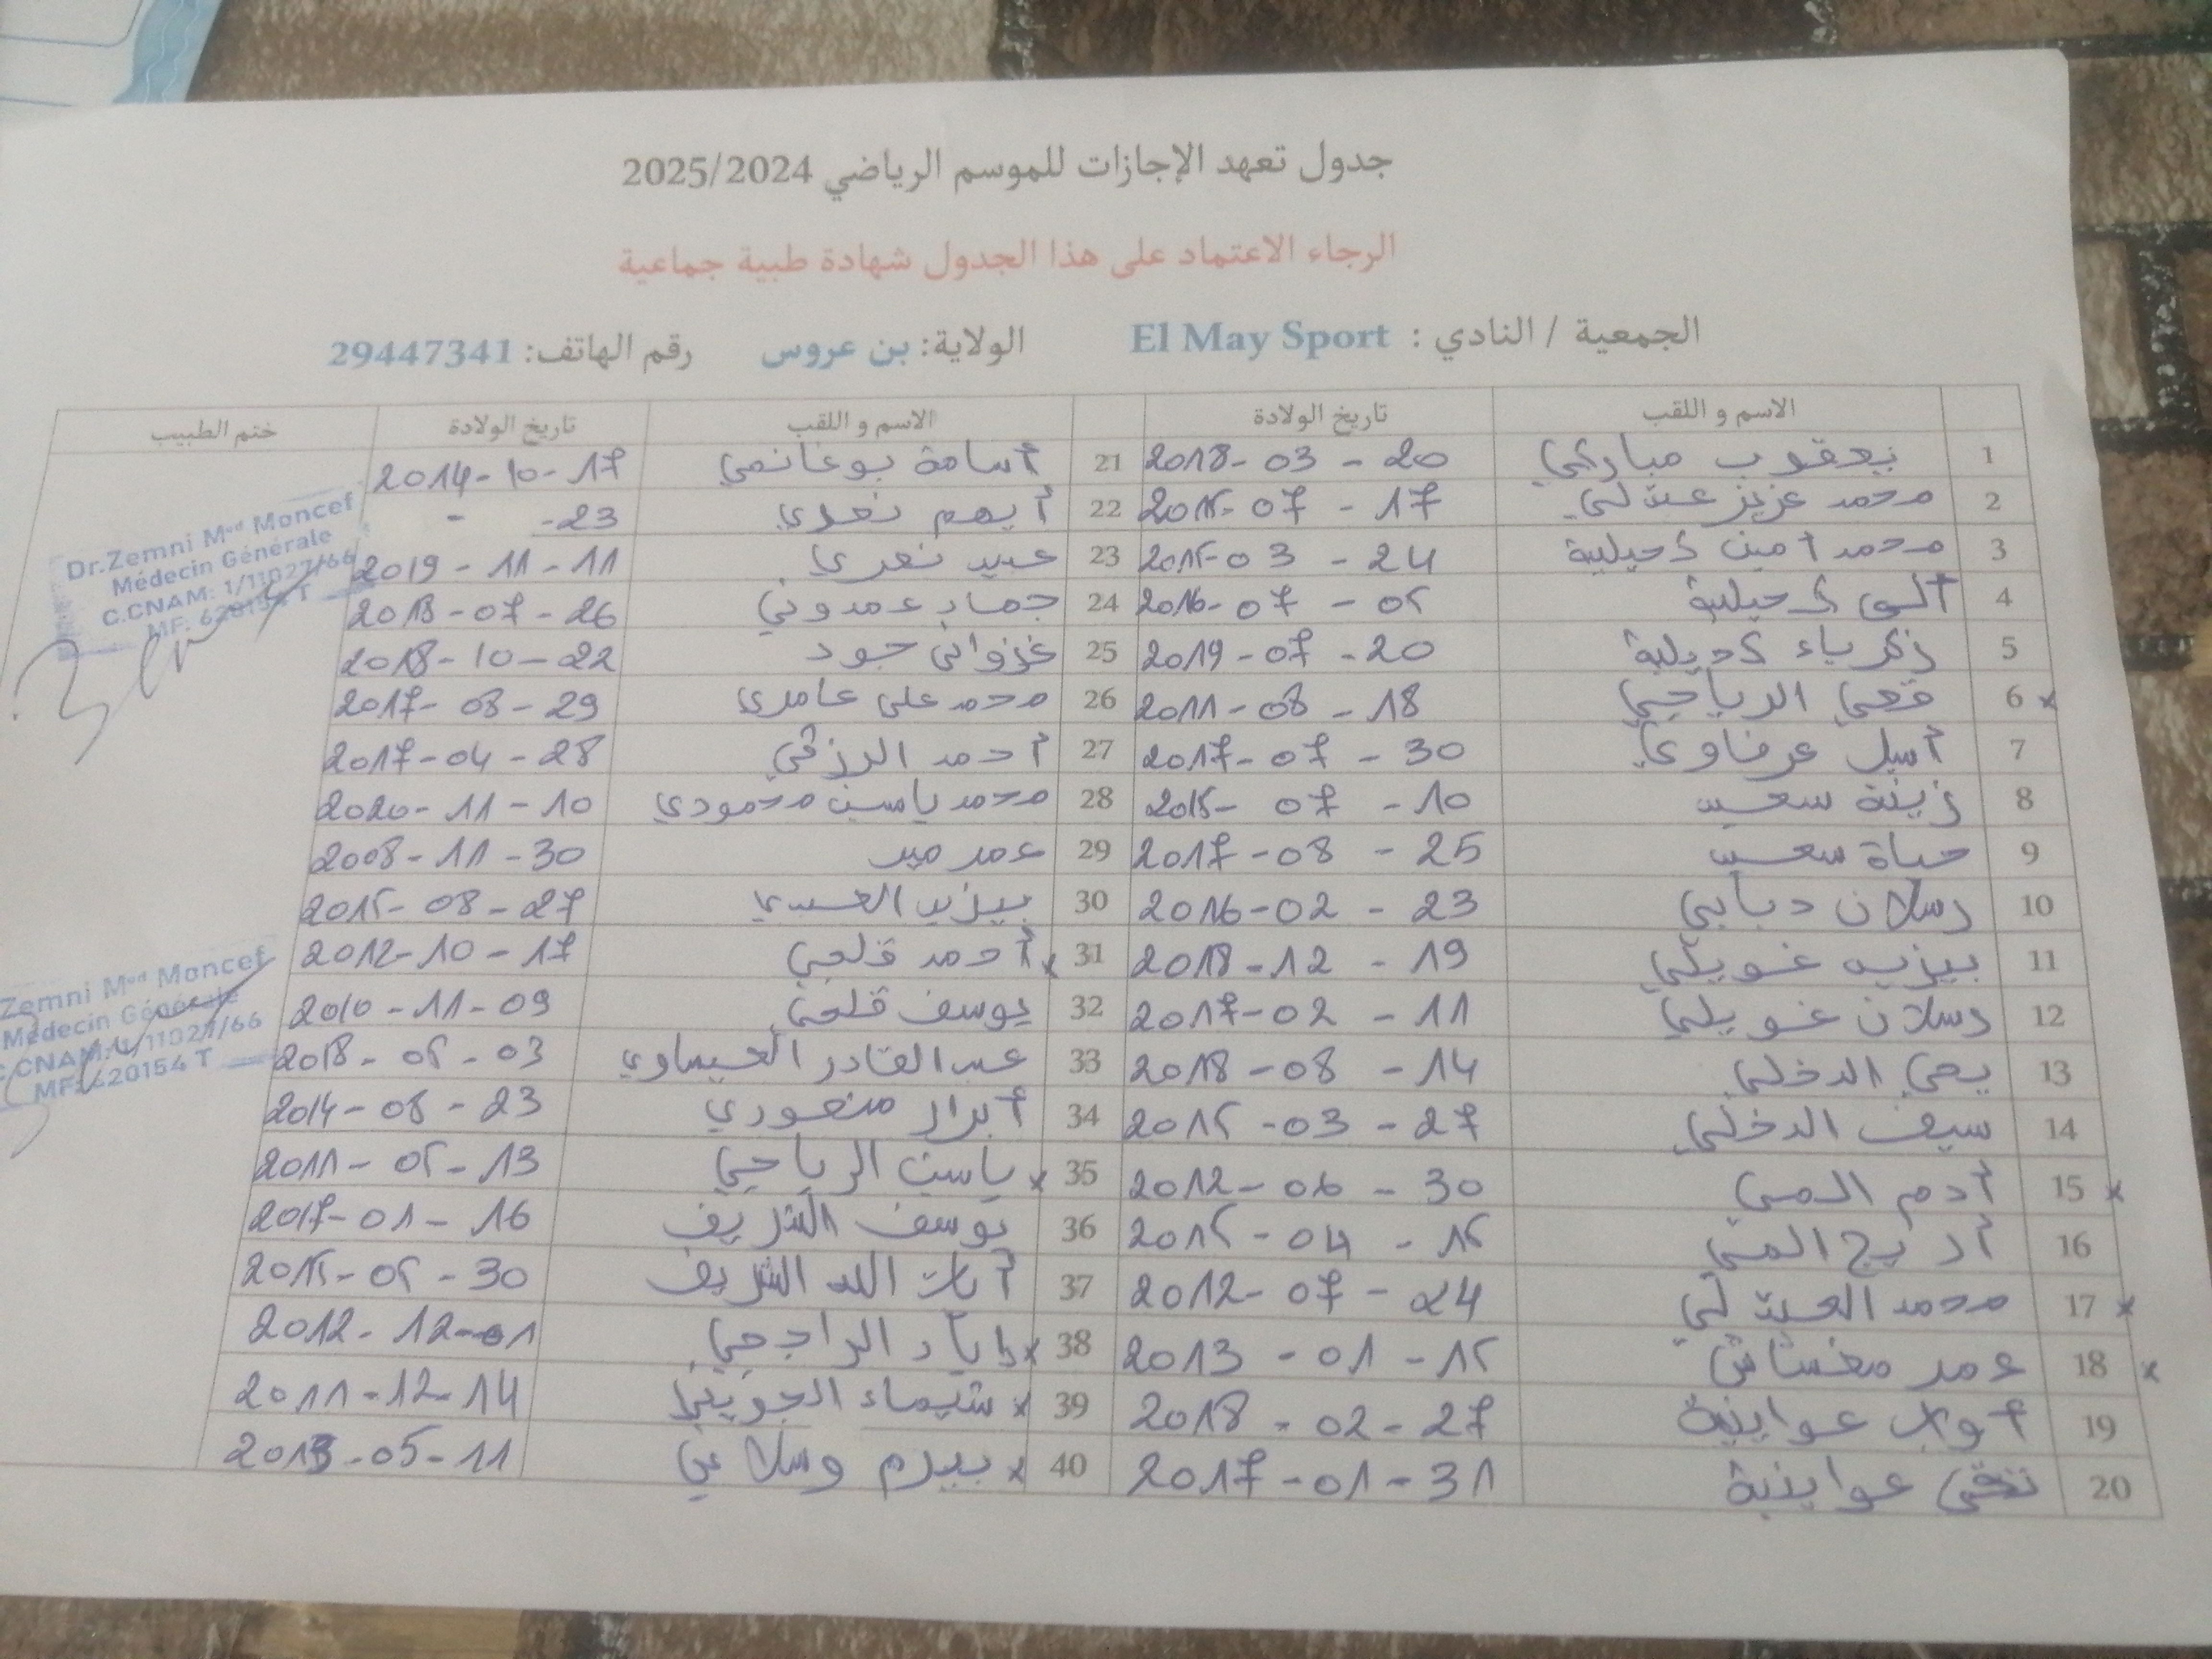 جدول تعهد الإجازات للموسم الرياضي 2025/2024
الرجاء الاعتماد على هذا الجدول شهادة طبية جماعية
الجمعية / النادي : El May Sport الولاية: بن عروس رقم الهاتف: 29447341
الاسم و اللقب تاريخ الولادة الاسم و اللقب تاريخ الولادة ختم الطبيب
1 يعقوب مباركي 20 - 03 - 2018 21 أسامة بوغانمي 17 - 10 - 2014
2 محمد عزيز 17 - 07 - 2015 22 أيهم 23 - -
3 محمد أمين 24 - 03 - 2015 23 11 - 11 - 2019
4 05 - 07 - 2016 24 عمدوني 26 - 07 - 2018
5 زكرياء 20 - 07 - 2019 25 غزواني جود 22 - 10 - 2018
6 x قصي الرياحي 18 - 08 - 2011 26 محمد علي عامري 29 - 08 - 2017
7 أسيل عرفاوي 30 - 07 - 2017 27 أحمد الرزقي 28 - 04 - 2017
8 زينة سعيد 10 - 07 - 2015 28 محمد ياسين محمودي 10 - 11 - 2020
9 حياة سعيد 25 - 08 - 2017 29 عمر 30 - 11 - 2008
10 رسلان دبابي 23 - 02 - 2016 30 27 - 08 - 2015
11 غويلي 19 - 12 - 2018 31 x أحمد قلعي 17 - 10 - 2012
12 رسلان غويلي 11 - 02 - 2017 32 يوسف قلعي 09 - 11 - 2010
13 يحي الدخلي 14 - 08 - 2018 33 عبد القادر العيساوي 03 - 05 - 2018
14 سيف الدخلي 27 - 03 - 2015 34 أبرار منصوري 23 - 08 - 2014
15 x أدم المي 30 - 06 - 2012 35 x ياسين الرياحي 13 - 05 - 2011
16 أريج المي 15 - 04 - 2015 36 يوسف الشريف 16 - 01 - 2017
17 x محمد 24 - 07 - 2012 37 أيات الله الشريف 30 - 05 - 2015
18 x عمر 15 - 01 - 2013 38 x إياد الراجحي 01 - 12 - 2012
19 أواب عواينية 27 - 02 - 2018 39 x شيماء الجويني 14 - 12 - 2011
20 تقى عواينية 31 - 01 - 2017 40 x بيرم وسلاتي 11 - 05 - 2013
Dr.Zemni Med Moncef
Médecin Générale
C.CNAM: 1/11027/66
MF: 620154 T
Zemni Med Moncef
Médecin Générale
C.CNAM: 1/11027/66
MF: 620154 T